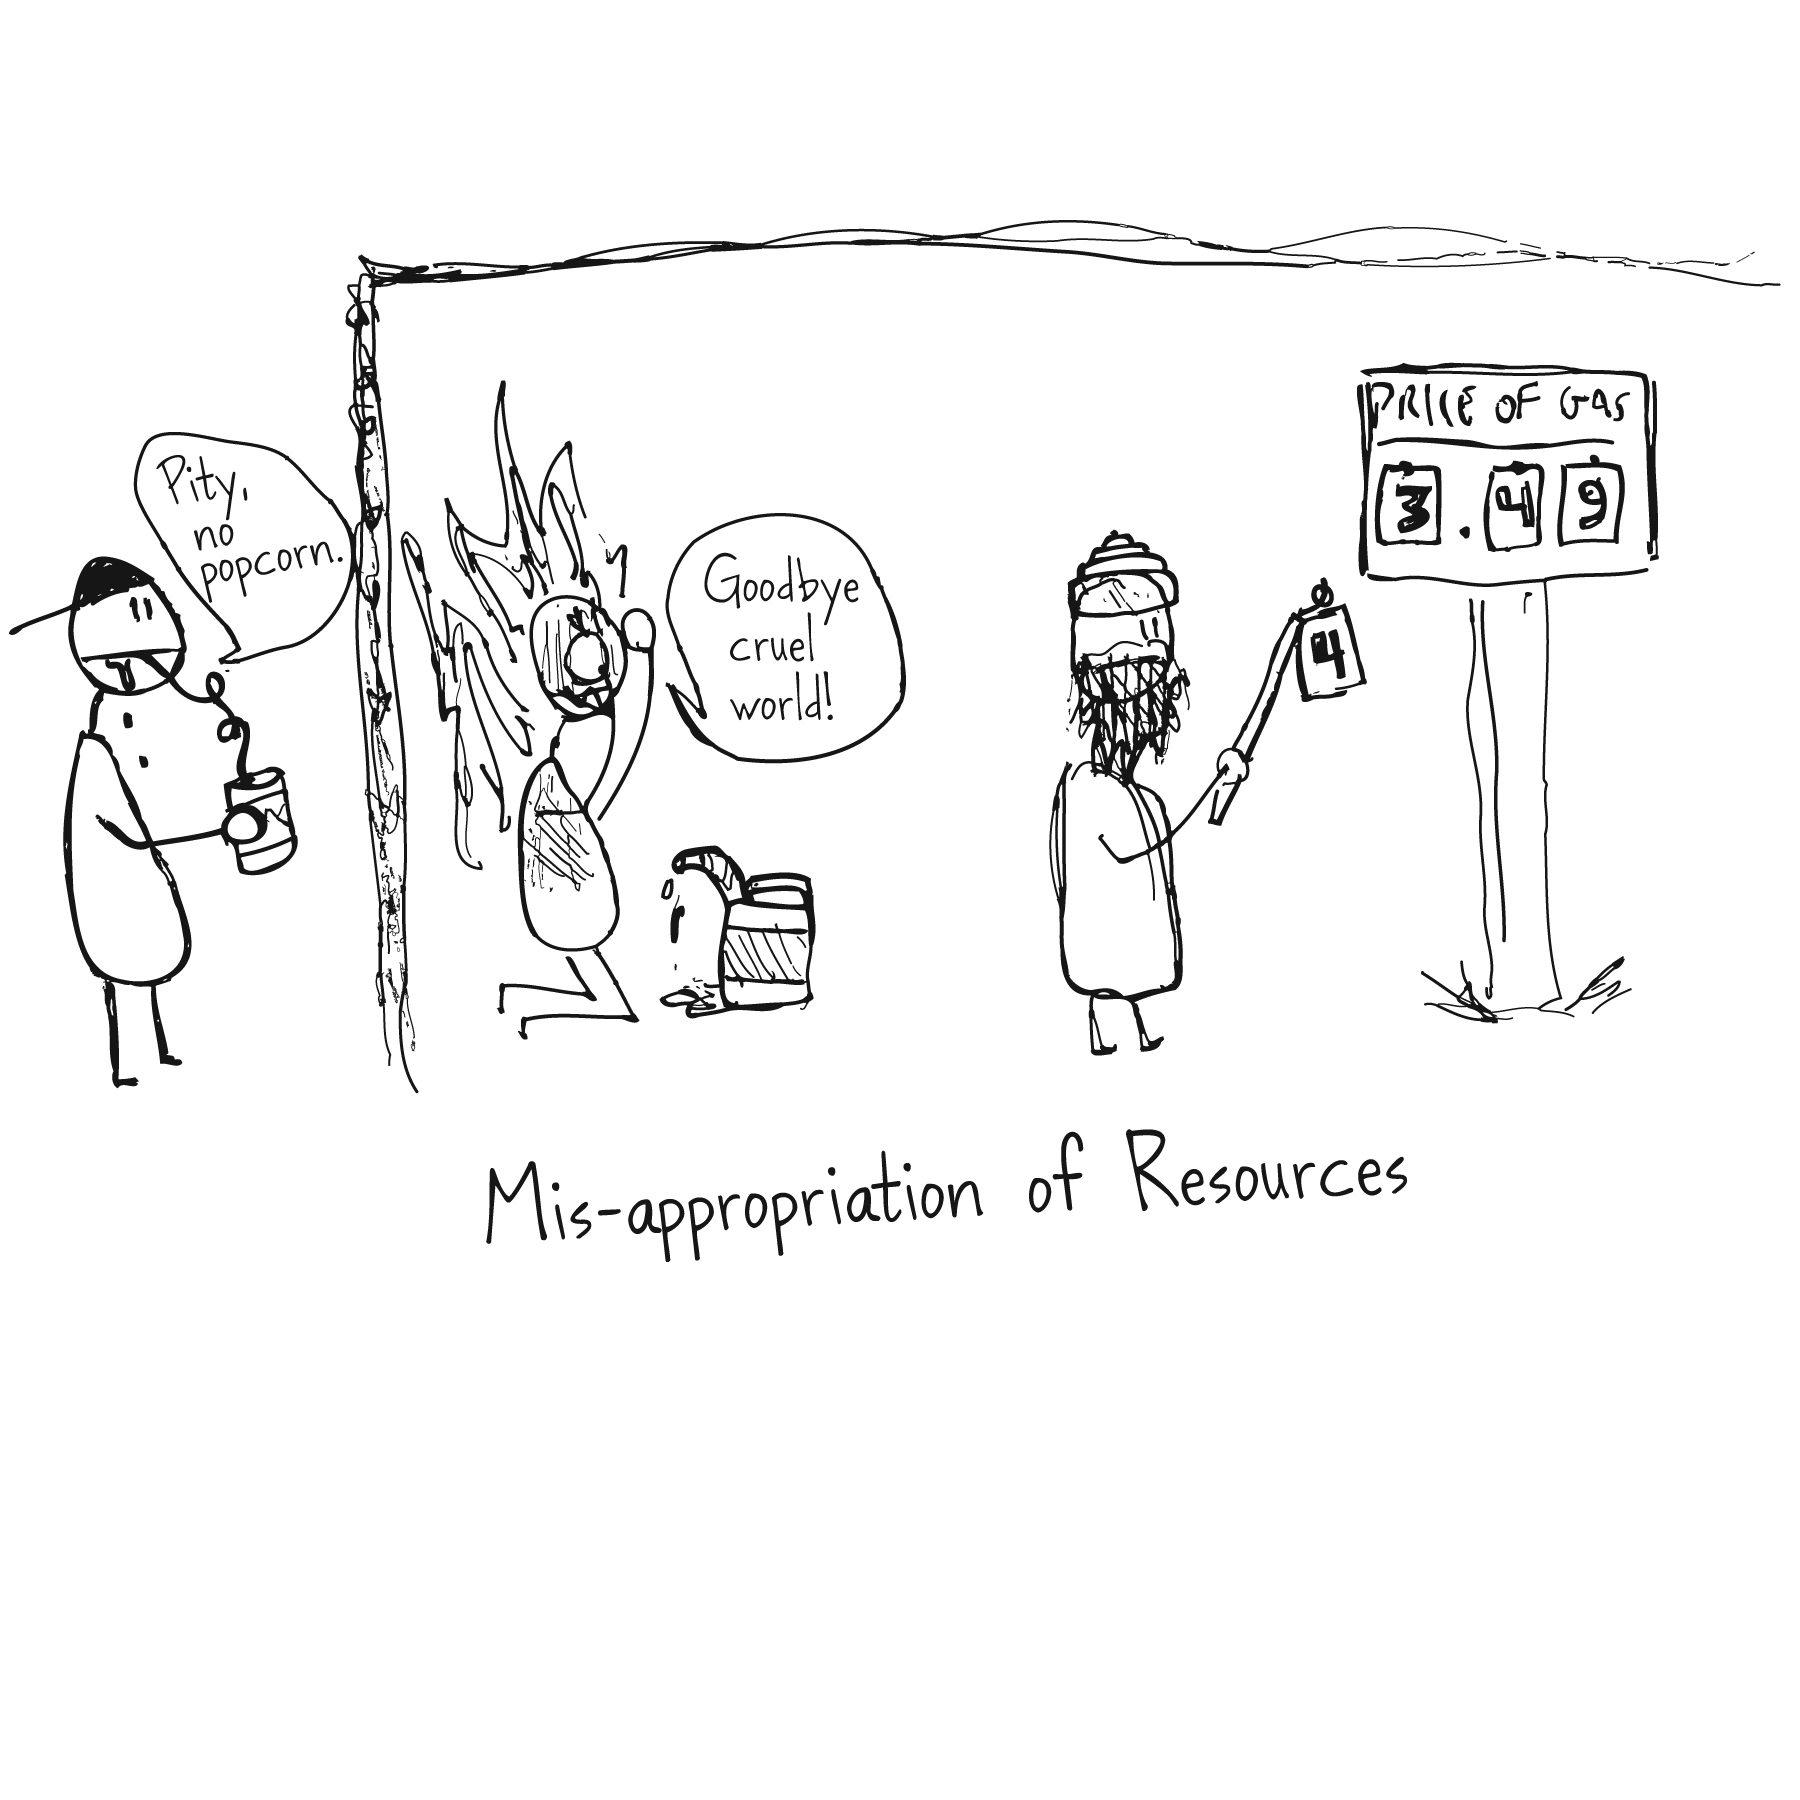 Pity,
no
popcorn.
Goodbye
cruel
world!
4
PRICE OF GAS
3.49
Mis-appropriation of Resources